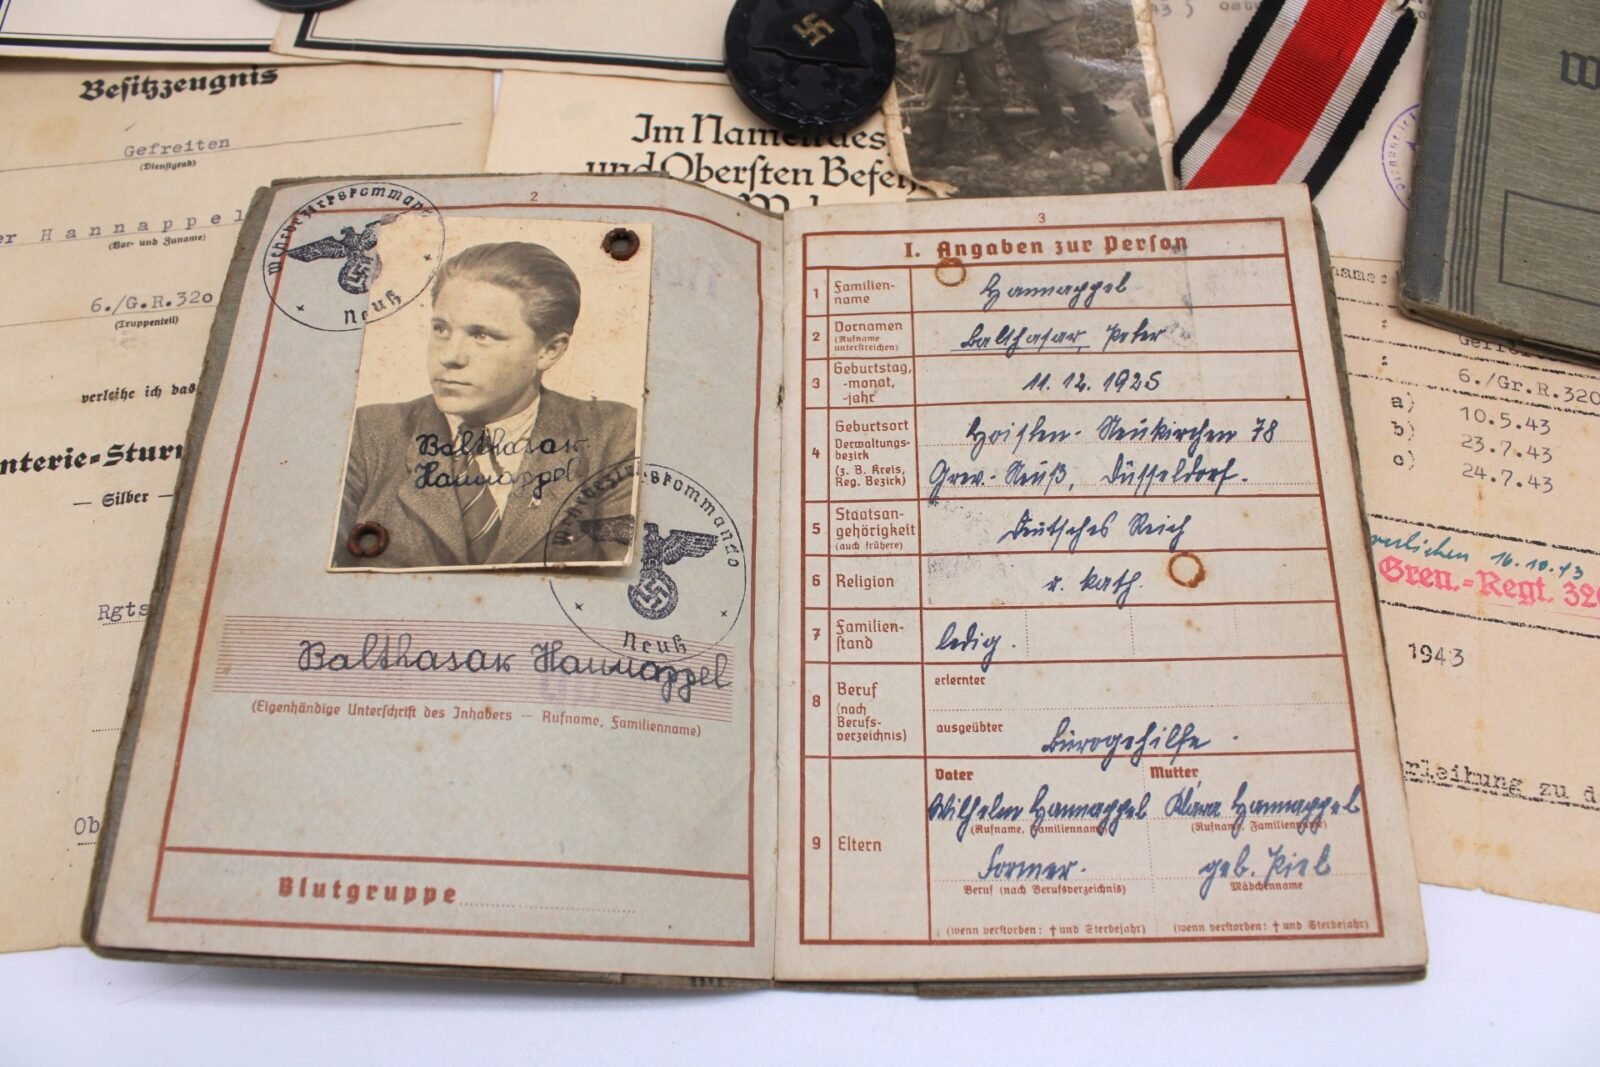 Besitzzeugnis
Gefreiten
(Dienstgrad)
Hannappel
(Vor- und Zuname)
6./G.R.320
(Truppenteil)
verleihe ich das
nterie-Stur
— Silber —
Rgts
Ob
Im Namen des
und Obersten Befeh
2
Wehrbezirkskommando
Neuß
Balthasar
Hannappel
Wehrbezirkskommando
Neuß
Balthasar Hannappel
(Eigenhändige Unterschrift des Inhabers — Rufname, Familienname)
Blutgruppe
3
I. Angaben zur Person
1 Familien-
name
Hannappel
2 Vornamen
(Rufname
unterstreichen)
Balthasar, Peter
3 Geburtstag,
-monat,
-jahr
11. 12. 1925
4 Geburtsort
Verwaltungs-
bezirk
(z. B. Kreis,
Reg. Bezirk)
Hoisten-Neukirchen 78
Grev.-Neuß, Düsseldorf.
5 Staatsan-
gehörigkeit
(auch frühere)
Deutsches Reich
6 Religion
r. kath.
7 Familien-
stand
ledig.
8 Beruf
(nach
Berufs-
verzeichnis)
erlernter
ausgeübter
Bürogehilfe.
9 Eltern
Vater Mutter
Wilhelm Hannappel Klara Hannappel
(Rufname, Familienname) (Rufname, Familienname)
Former. geb. Piel
Beruf (nach Berufsverzeichnis) Mädchenname
(wenn verstorben: † und Sterbejahr) (wenn verstorben: † und Sterbejahr)
W
name:
Gefrei
6./Gr.R.320
a) 10.5.43
b) 23.7.43
c) 24.7.43
verliehen 16.10.43
Gren.-Regt. 320
1943
rleihung zu d